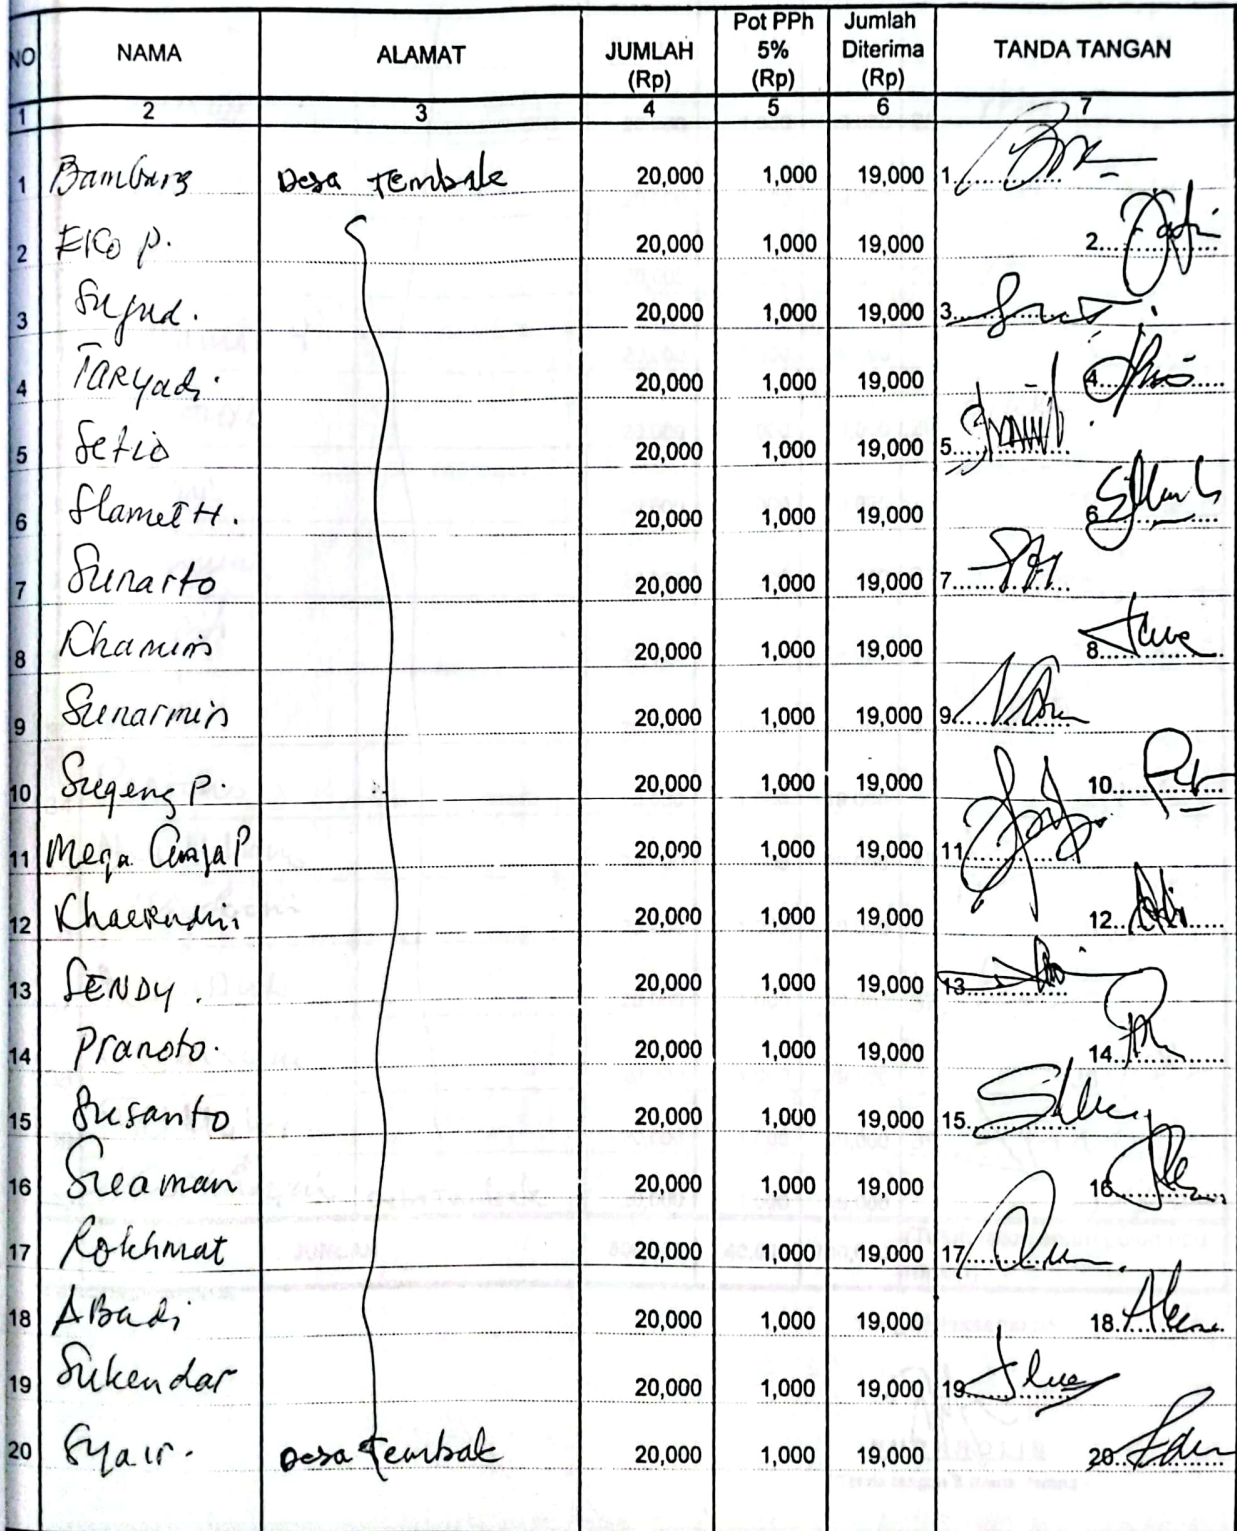 NO NAMA ALAMAT JUMLAH (Rp) Pot PPh 5% (Rp) Jumlah Diterima (Rp) TANDA TANGAN
1 2 3 4 5 6 7
1 Bambang Desa Tembak 20,000 1,000 19,000 1
2 Eko P. 20,000 1,000 19,000 2
3 Sujud. 20,000 1,000 19,000 3
4 TARyadi 20,000 1,000 19,000 4
5 Setio 20,000 1,000 19,000 5
6 Slamet H. 20,000 1,000 19,000 6
7 Sunarto 20,000 1,000 19,000 7
8 Khamim 20,000 1,000 19,000 8
9 Sunarmin 20,000 1,000 19,000 9
10 Sugeng P. 20,000 1,000 19,000 10
11 Mega P 20,000 1,000 19,000 11
12 Khaerudin 20,000 1,000 19,000 12
13 SENDY. 20,000 1,000 19,000 13
14 Pranoto. 20,000 1,000 19,000 14
15 Susanto 20,000 1,000 19,000 15
16 Sueaman 20,000 1,000 19,000 16
17 Rokhmat 20,000 1,000 19,000 17
18 ABadi 20,000 1,000 19,000 18
19 Sukendar 20,000 1,000 19,000 19
20 Syair. Desa Tembak 20,000 1,000 19,000 20